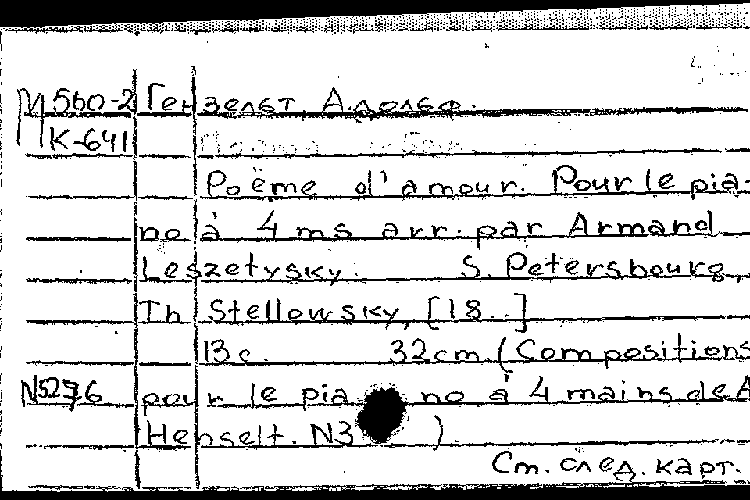 М 560-2 Гензельт, Адольф.
К-641
Poëme d'amour. Pour le pia-
no à 4 ms arr. par Armand
Leszetysky. S. Petersbourg,
Th Stellowsky, [18..]
13c. 32cm. (Compositions
N5276 pour le piano à 4 mains de A
Henselt. N3 )
См. след. карт.